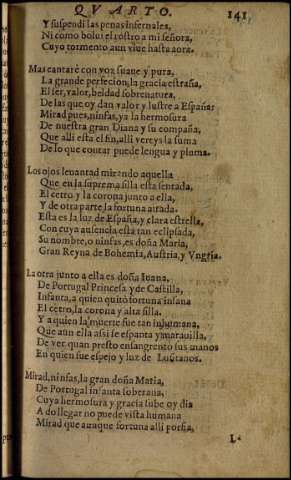 QVARTO. 141.
Y suspendi las penas infernales,
Ni como bolui el rostro a mi señora,
Cuyo tormento aun viue hasta aora.
Mas cantaré con voz suaue y pura,
La grande perfecion, la gracia estraña,
El ser, valor, beldad sobrenatura,
De las que oy dan valor y lustre a España:
Mirad pues, ninfas, ya la hermosura
De nuestra gran Diana y su compaña,
Que alli esta el fin, alli vereys la suma
De lo que contar puede lengua y pluma.
Los ojos leuantad mirando aquella
Que en la suprema silla esta sentada,
El cetro y la corona junto a ella,
Y de otra parte la fortuna airada.
Esta es la luz de España, y clara estrella,
Con cuya ausencia esta tan eclipsada,
Su nombre, o ninfas, es doña Maria,
Gran Reyna de Bohemia, Austria, y Vngria.
La otra junto a ella es doña Iuana,
De Portugal Princesa y de Castilla,
Infanta, a quien quitó fortuna insana
El cetro, la corona y alta silla.
Y a quien la muerte fue tan inhumana,
Que aun ella assi se espanta y marauilla,
De ver quan presto ensangrento sus manos
En quien fue espejo y luz de Lusitanos.
Mirad, ninfas, la gran doña Maria,
De Portugal infanta soberana,
Cuya hermosura y gracia sube oy dia
A do llegar no puede vista humana
Mirad que aunque fortuna alli porfia,
L